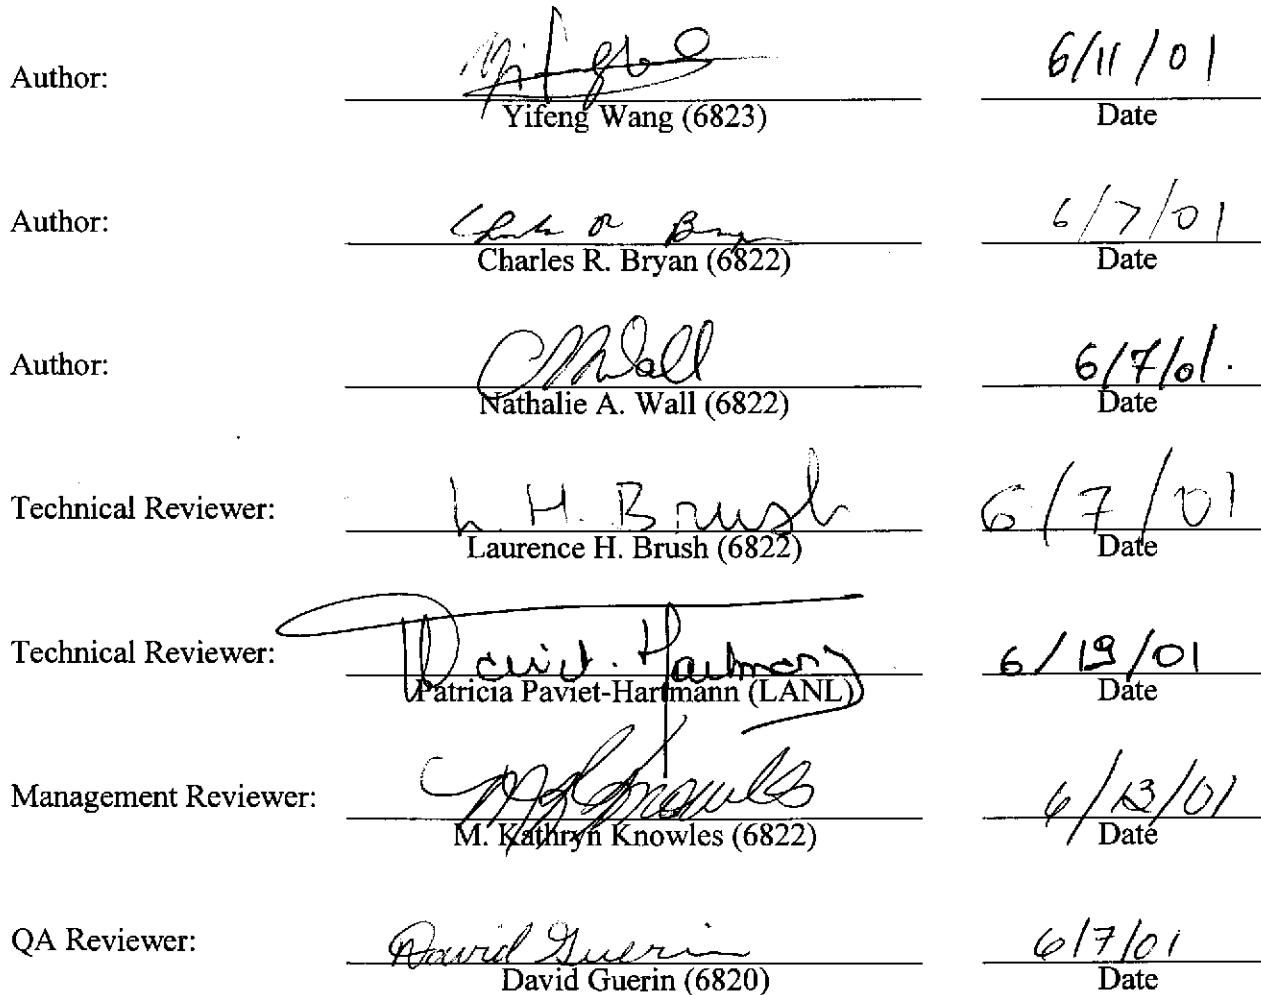 Author: 6/11/01
Yifeng Wang (6823) Date
Author: 6/7/01
Charles R. Bryan (6822) Date
Author: 6/7/01.
Nathalie A. Wall (6822) Date
Technical Reviewer: L. H. Brush 6/7/01
Laurence H. Brush (6822) Date
Technical Reviewer: 6/19/01
Patricia Paviet-Hartmann (LANL) Date
Management Reviewer: 6/13/01
M. Kathryn Knowles (6822) Date
QA Reviewer: David Guerin 6/7/01
David Guerin (6820) Date